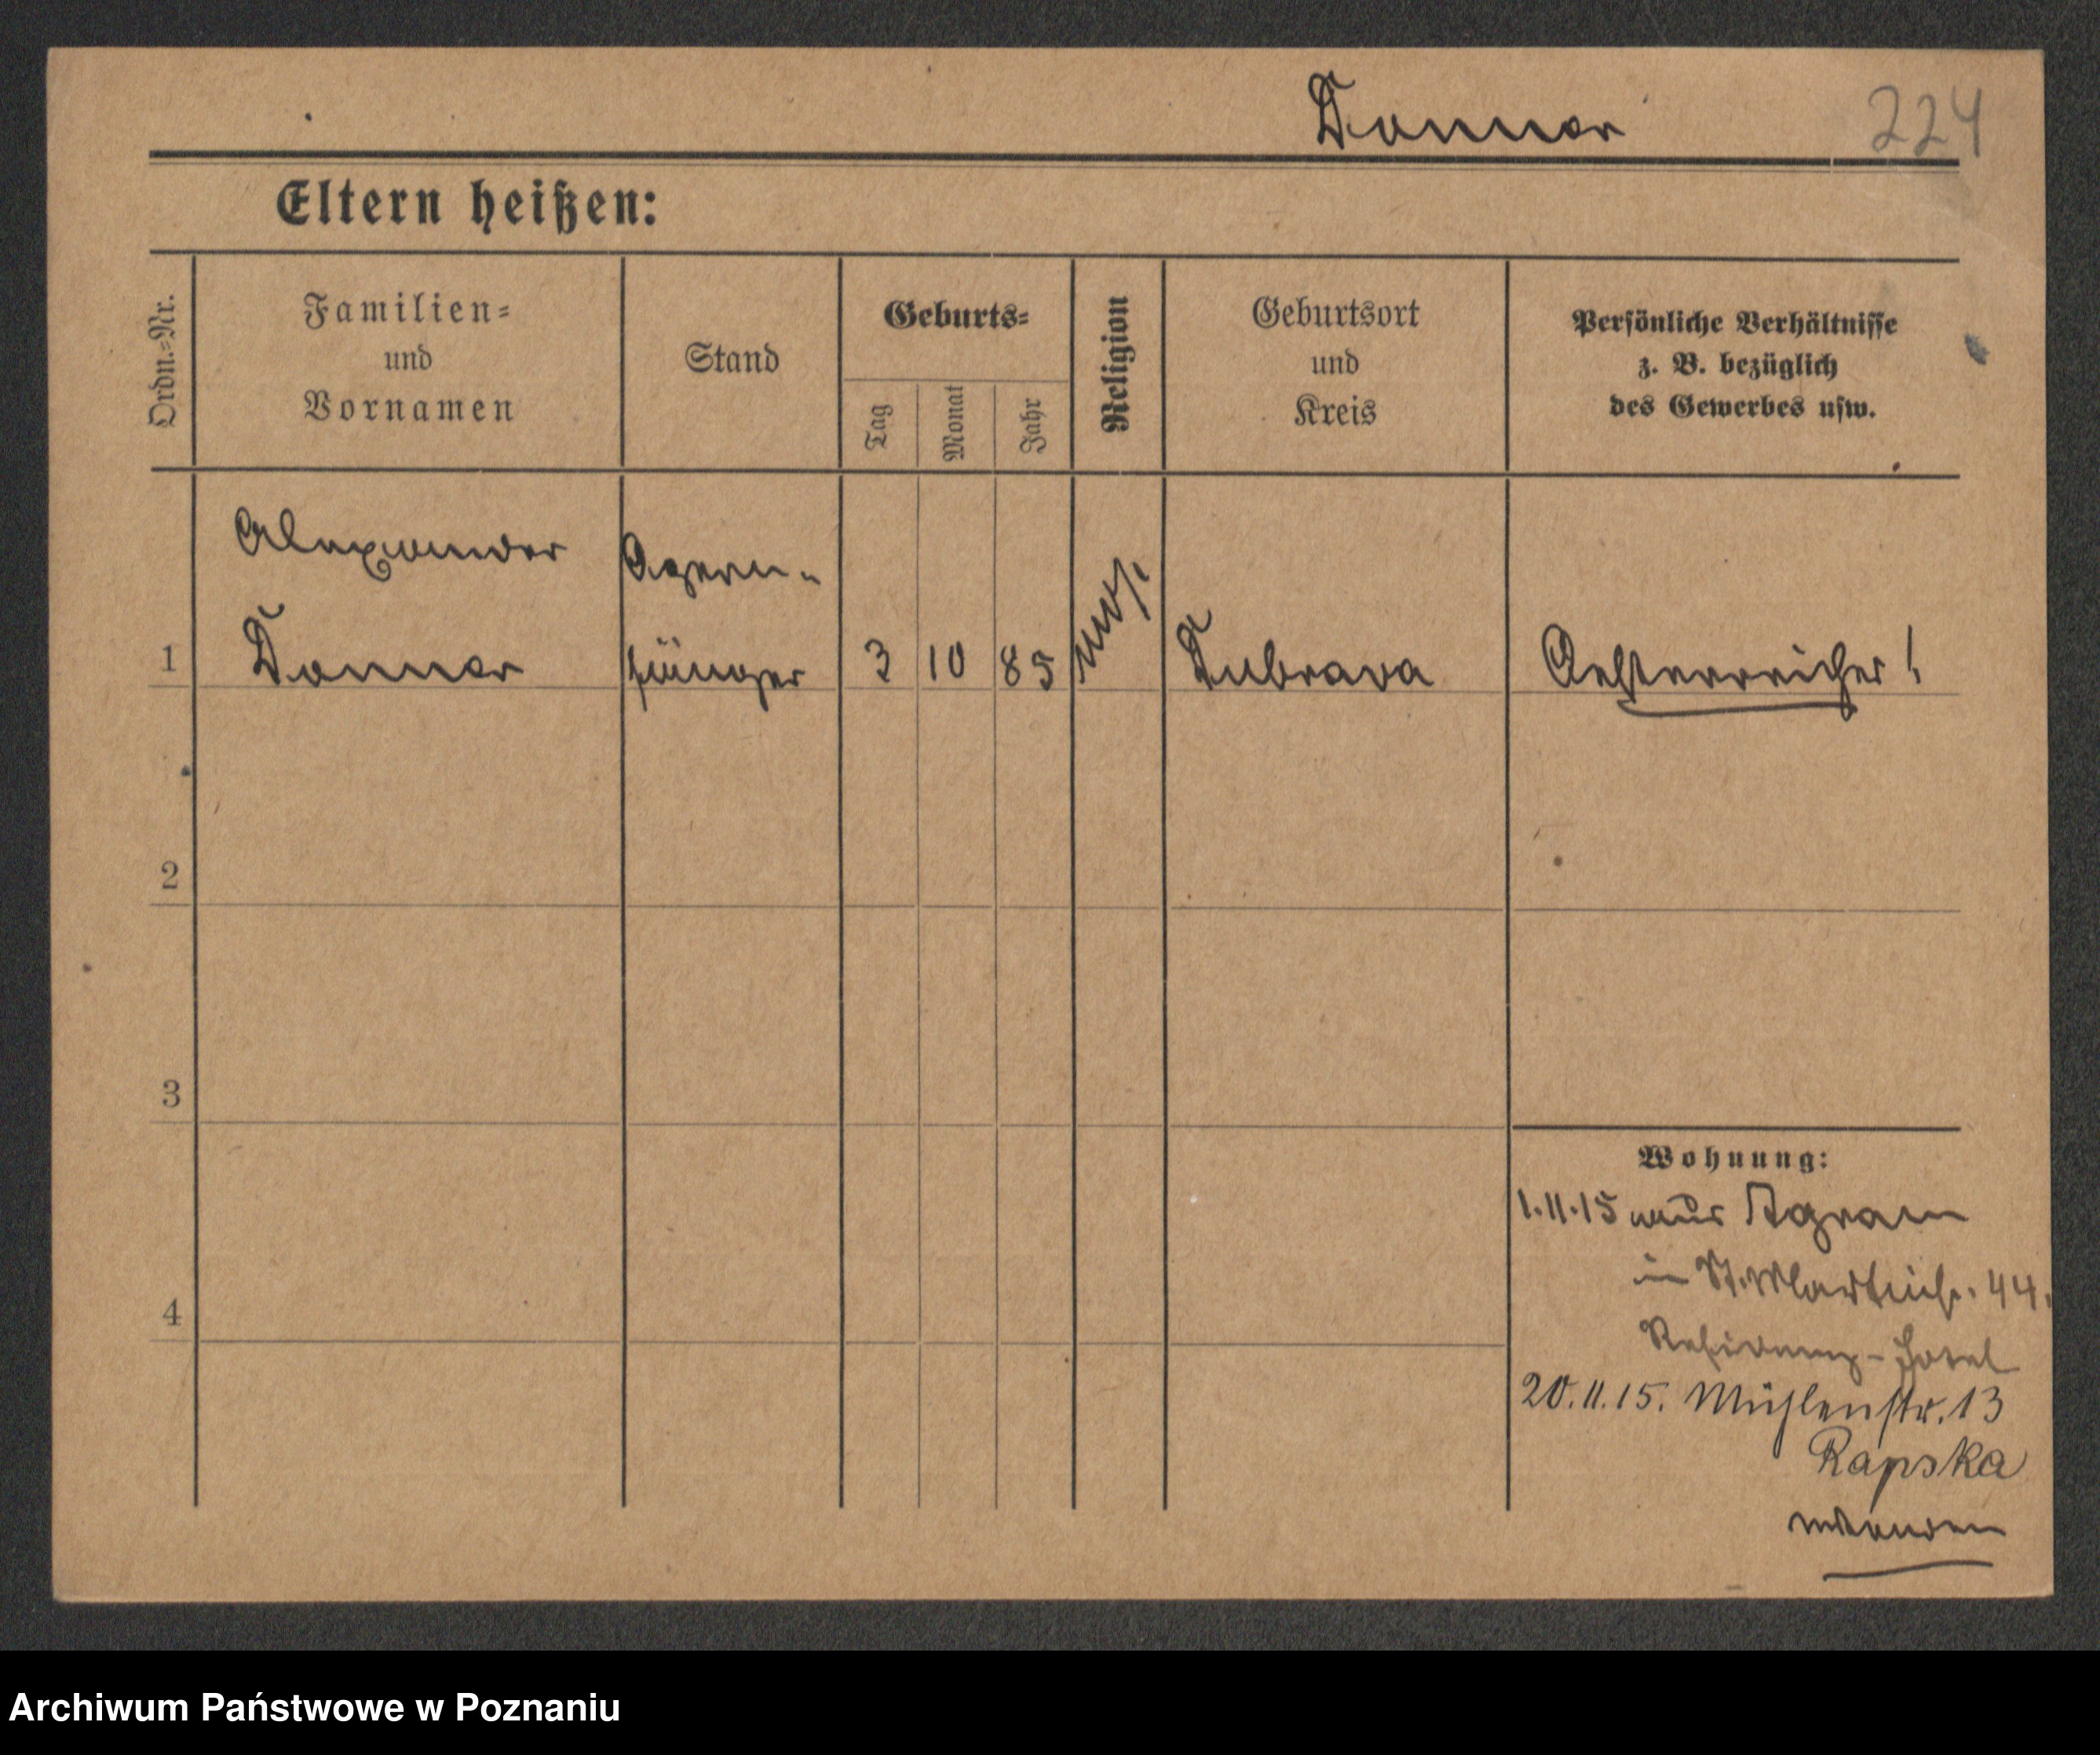 Donner
224
Eltern heißen:
Ordn.-Nr.
Familien-
und
Vornamen
Stand
Geburts-
Tag
Monat
Jahr
Religion
Geburtsort
und
Kreis
Persönliche Verhältnisse
z. B. bezüglich
des Gewerbes usw.
Alexander
Opern-
1 Donner sänger 3 10 85 mos. Dubrava Oesterreicher!
2
3
4
Wohnung:
1.11.15 aus Agram
in St. Martinstr. 44.
Residenz-Hotel
20.11.15. Mühlenstr. 13
Rapska
Archiwum Państwowe w Poznaniu